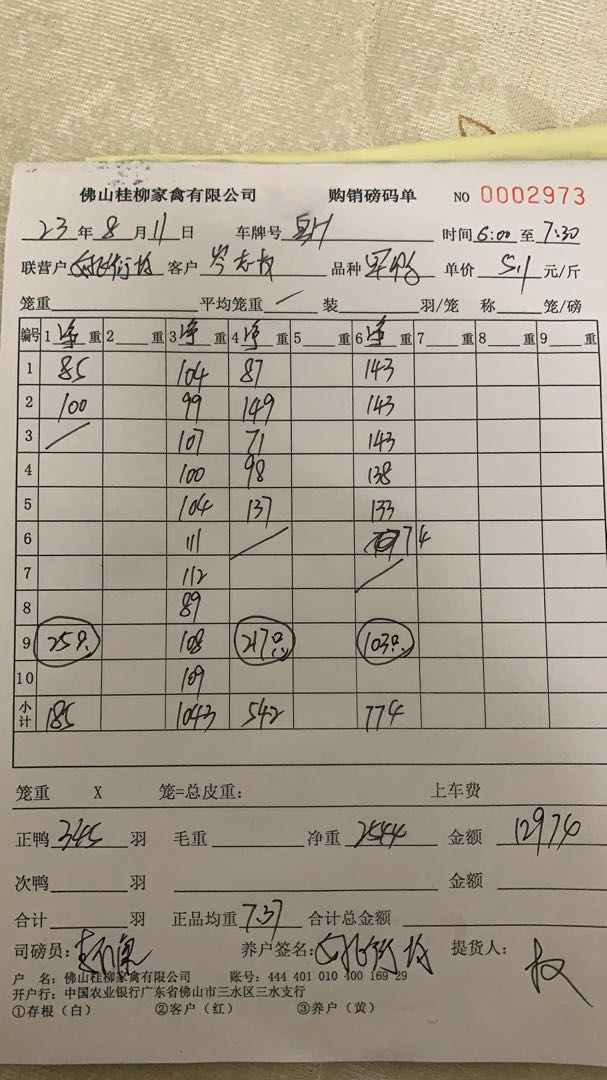 佛山桂柳家禽有限公司 购销磅码单 NO 0002973
23 年 8 月 11 日 车牌号 时间 6:00 至 7:30
联营户 客户 岑志权 品种 单价 5.1 元/斤
笼重 平均笼重 / 装 羽/笼 称 笼/磅
编号 1 净 重 2 重 3 净 重 4 净 重 5 重 6 净 重 7 重 8 重 9 重
1 85 104 87 143
2 100 99 149 143
3 / 107 71 143
4 100 98 138
5 104 137 133
6 111 / 74
7 112 /
8 89
9 25只 108 217只 103只
10 109
小计 185 1043 542 774
笼重 X 笼=总皮重: 上车费
正鸭 345 羽 毛重 净重 2544 金额 12974
次鸭 羽 金额
合计 羽 正品均重 7.37 合计总金额
司磅员: 养户签名: 提货人: 权
户 名: 佛山桂柳家禽有限公司 账号: 444 401 010 400 169 29
开户行: 中国农业银行广东省佛山市三水区三水支行
①存根（白） ②客户（红） ③养户（黄）